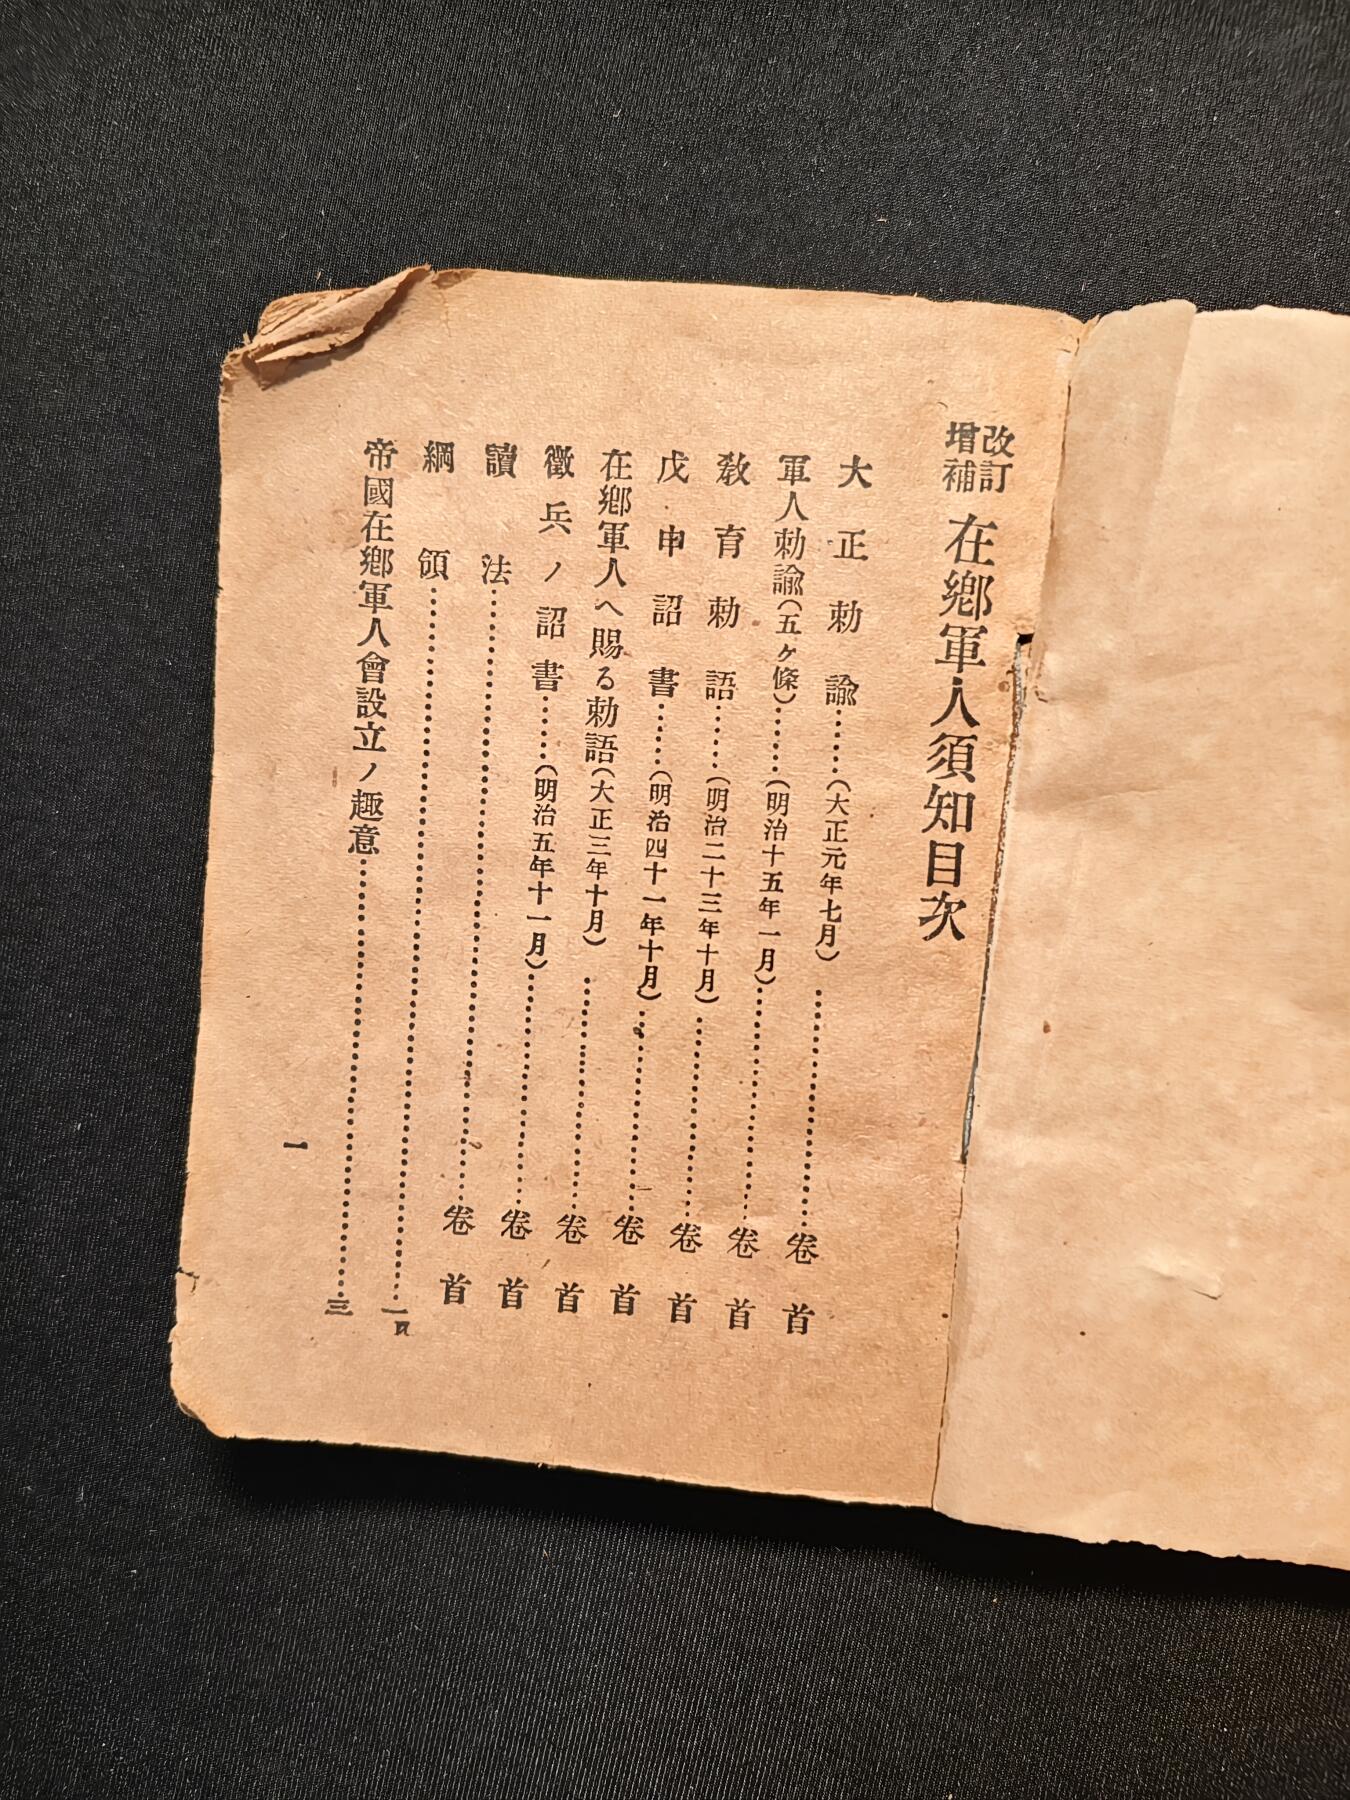 改訂增補 在鄕軍人須知目次
大正勅諭……(大正元年七月)……卷首
軍人勅諭(五ヶ條)……(明治十五年一月)……卷首
敎育勅語……(明治二十三年十月)……卷首
戊申詔書……(明治四十一年十月)……卷首
在鄕軍人へ賜る勅語(大正三年十月)……卷首
徵兵ノ詔書……(明治五年十一月)……卷首
讀法……卷首
綱領……一頁
帝國在鄕軍人會設立ノ趣意……三
一